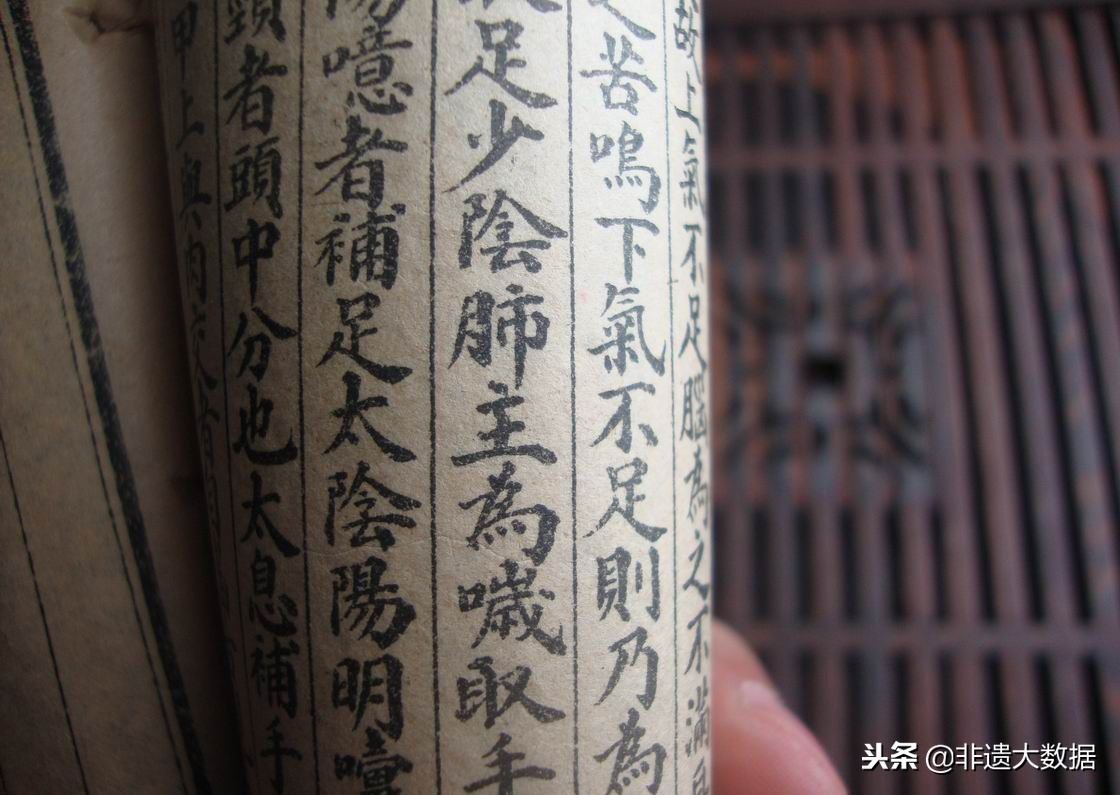 故上氣不足腦為之不滿
之苦嗚下氣不足則乃為
足少陰肺主為噦取手
陽噫者補足太陰陽明嚏
頸者頭中分也太息補手
甲上與肉
头条 @非遗大数据